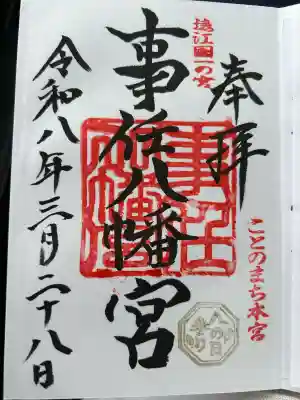 奉拝
ことのまち本宮
遠江國一の宮
事任八幡宮
令和八年三月二十八日